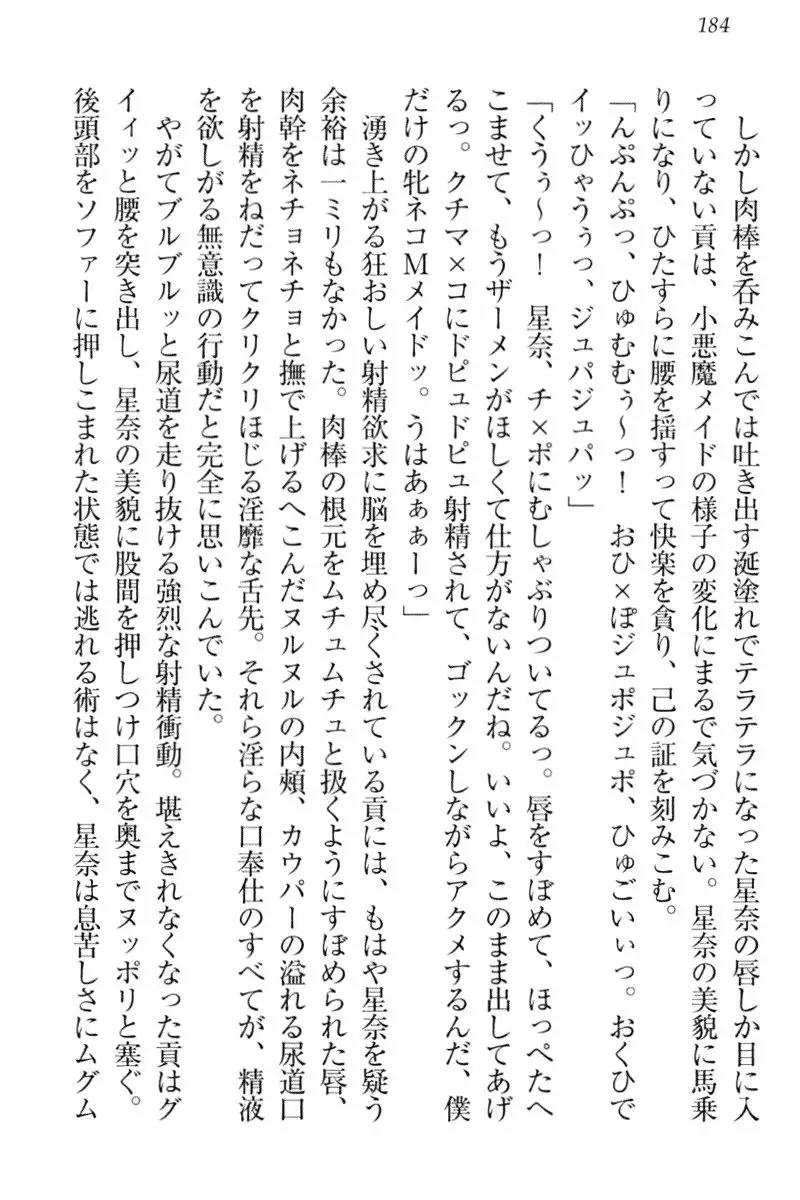 184
しかし肉棒を呑みこんでは吐き出す涎塗れでテラテラになった星奈の唇しか目に入
っていない貢は、小悪魔メイドの様子の変化にまるで気づかない。星奈の美貌に馬乗
りになり、ひたすらに腰を揺すって快楽を貪り、己の証を刻みこむ。
「んぷんぷっ、ひゅむむぅ〜っ！　おひ×ぽジュポジュポ、ひゅごいぃっ。おくひで
イッひゃうぅっ、ジュパジュパッ」
「くうぅ〜っ！　星奈、チ×ポにむしゃぶりついてるっ。唇をすぼめて、ほっぺたへ
こませて、もうザーメンがほしくて仕方がないんだね。いいよ、このまま出してあげ
るっ。クチマ×コにドピュドピュ射精されて、ゴックンしながらアクメするんだ、僕
だけの牝ネコMメイドッ。うはあぁぁーっ」
湧き上がる狂おしい射精欲求に脳を埋め尽くされている貢には、もはや星奈を疑う
余裕は一ミリもなかった。肉棒の根元をムチュムチュと扱くようにすぼめられた唇、
肉幹をネチョネチョと撫で上げるへこんだヌルヌルの内頬、カウパーの溢れる尿道口
を射精をねだってクリクリほじる淫靡な舌先。それら淫らな口奉仕のすべてが、精液
を欲しがる無意識の行動だと完全に思いこんでいた。
やがてブルブルッと尿道を走り抜ける強烈な射精衝動。堪えきれなくなった貢はグ
イィッと腰を突き出し、星奈の美貌に股間を押しつけ口穴を奥までヌッポリと塞ぐ。
後頭部をソファーに押しこまれた状態では逃れる術はなく、星奈は息苦しさにムグム